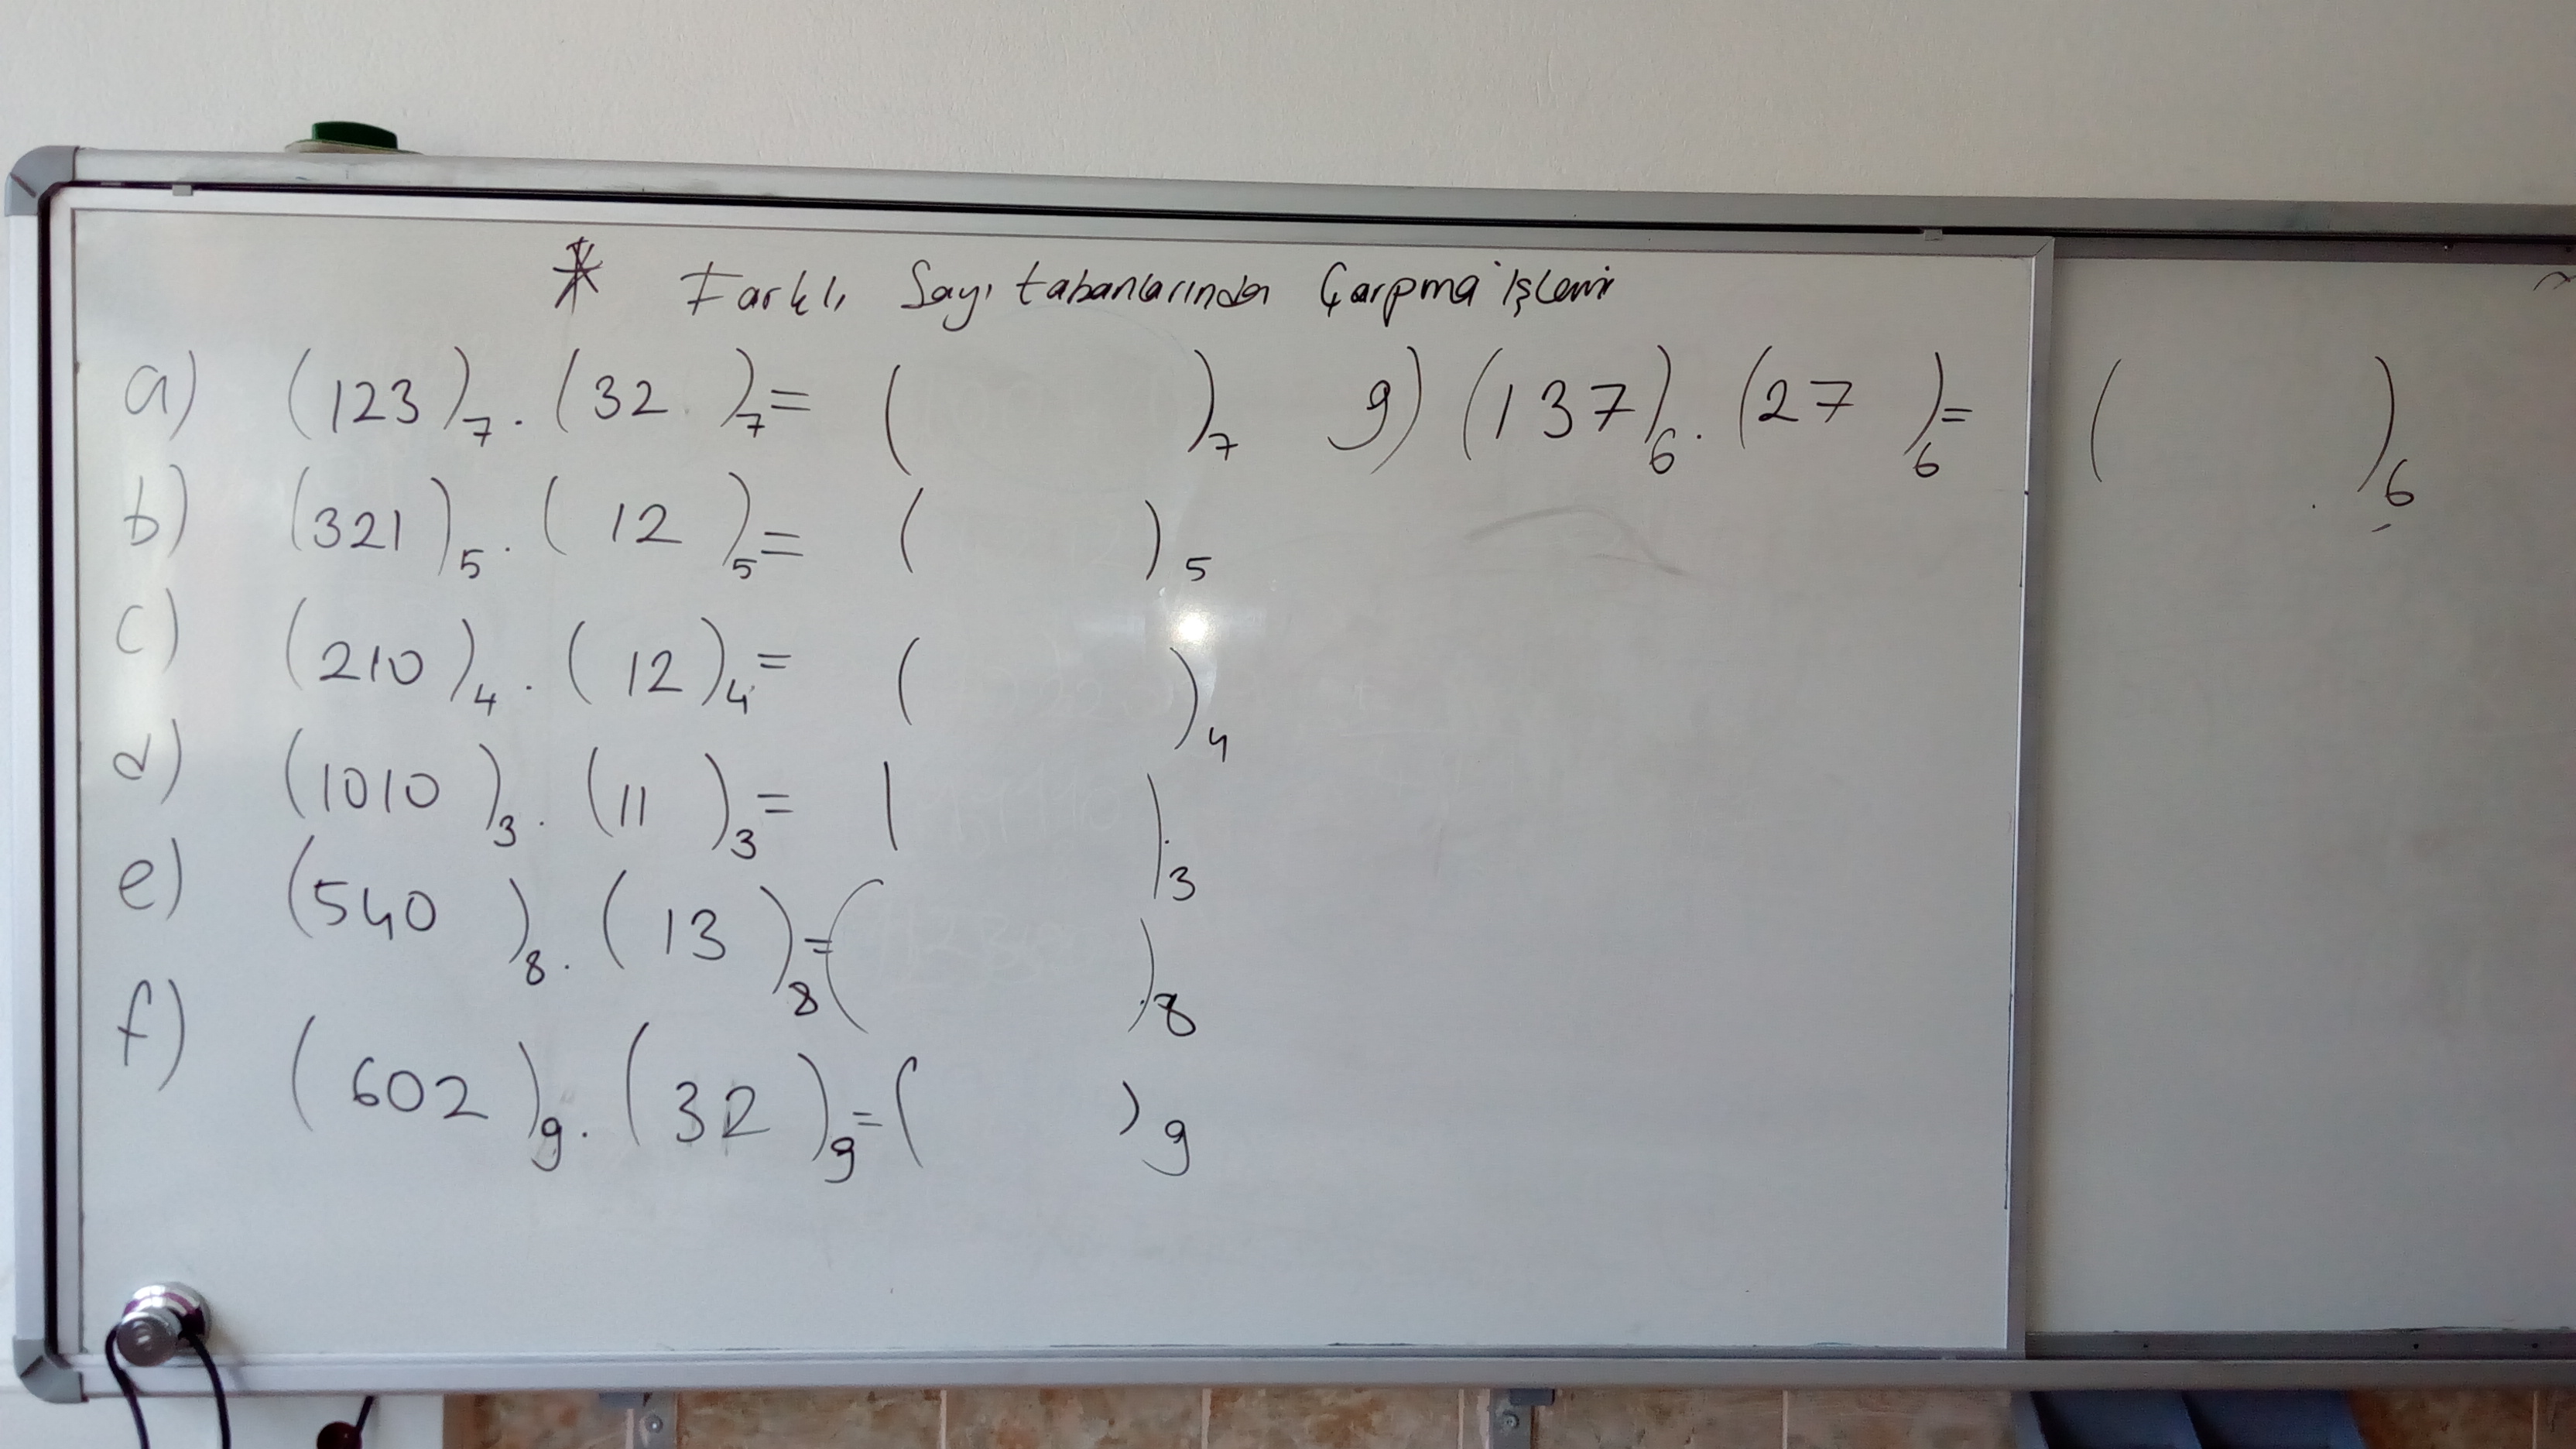 * Farklı Sayı tabanlarında Çarpma İşlemi
a) (123)₇ . (32)₇ = ( )₇
b) (321)₅ . (12)₅ = ( )₅
c) (210)₄ . (12)₄ = ( )₄
d) (1010)₃ . (11)₃ = ( )₃
e) (540)₈ . (13)₈ = ( )₈
f) (602)₉ . (32)₉ = ( )₉
g) (137)₆ . (27)₆ = ( )₆